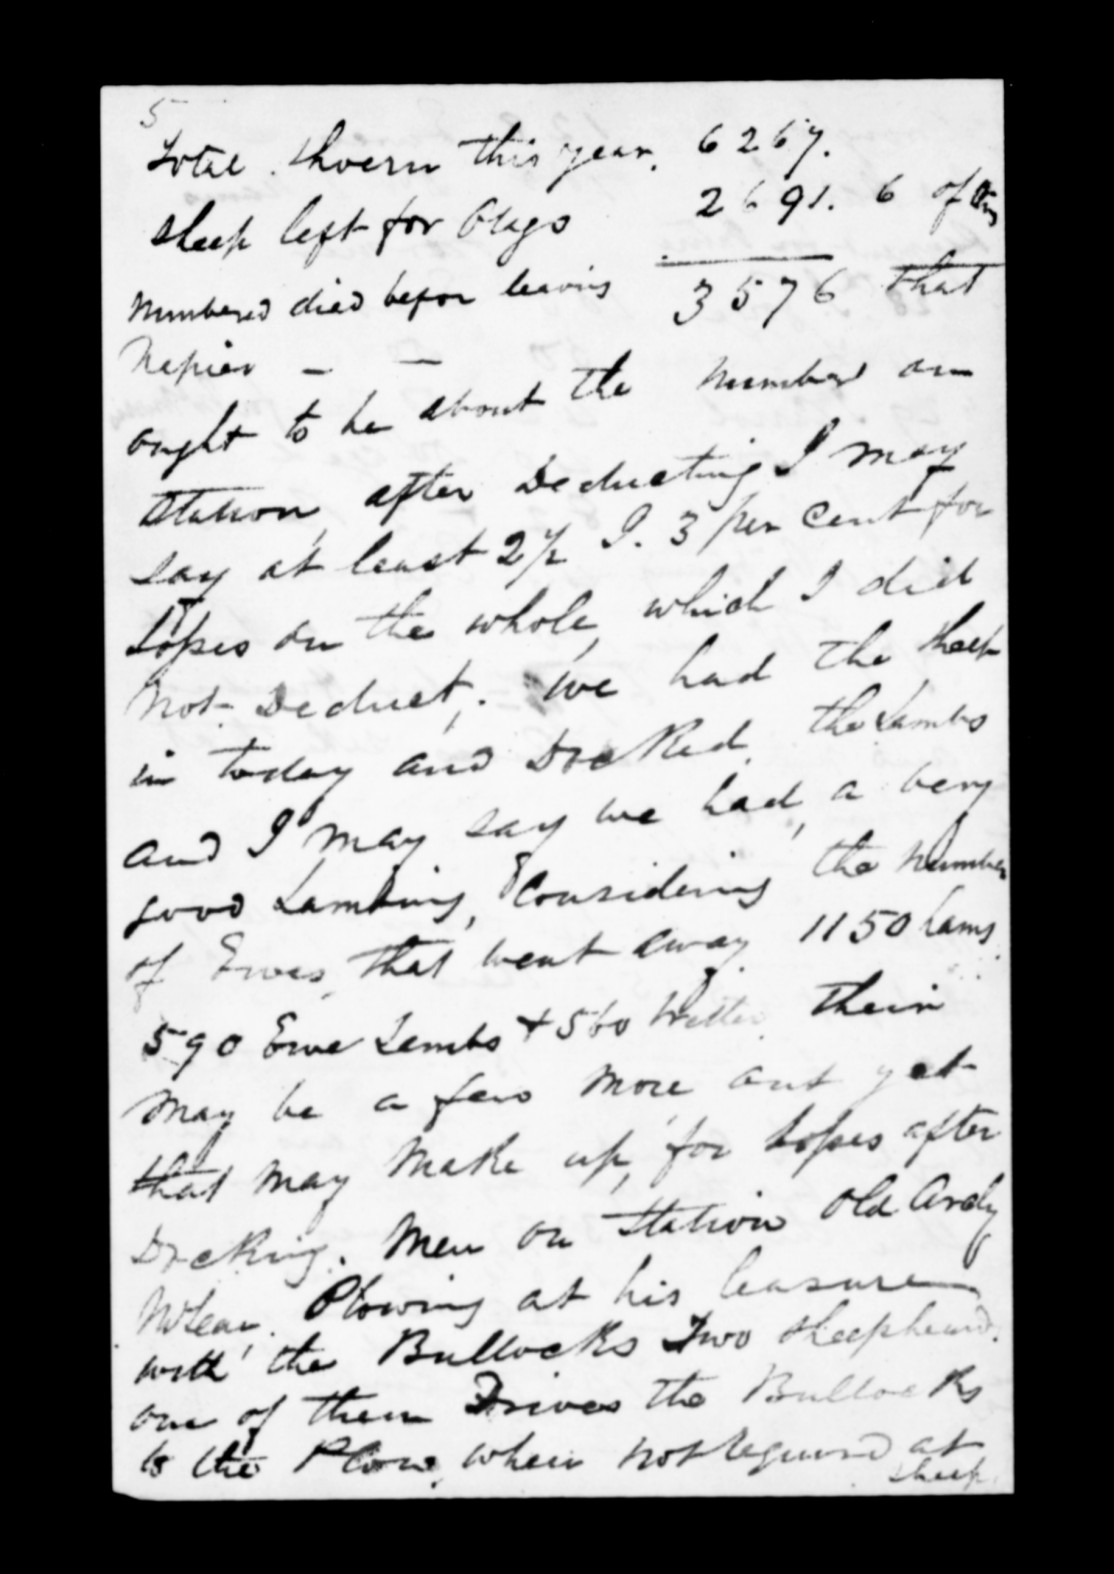 5
Total Shoern this year. 6267.
Sheep left for Otago 2691. 6 of this
numbered died befor leaving 3576 that
Napier — —
ought to be about the number on
Station, after Deducting I may
say at least 2½ I. 3 per cent for
Losses on the whole, which I did
not Deduct. We had the sheep
in today and Docked the Lambs
and I may say we had, a very
good Lambing, Considering the number
of Ewes, that went away 1150 Lams
590 Ewe Lambs + 560 Wether Their
may be a few more out yet
that may make up, for Losses after
Docking. Men on Station Old Andy
McLean. Plowing at his leasure
with the Bullocks Two sheepheards.
one of them Drives the Bullocks
to the Plow, when not requird at
sheep.